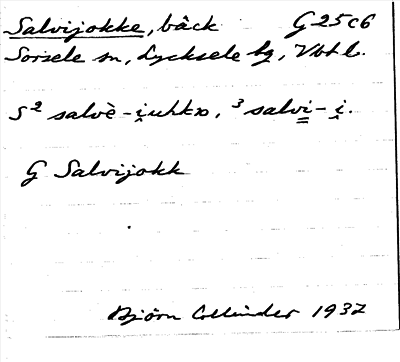 Salvijokke, bäck G25c6
Sorsele sn, Lycksele lg, Vbtl.
S² salvè-i̯uhkɒ, ³ salvi-i̯.
G Salvijokk
Björn Collinder 1937